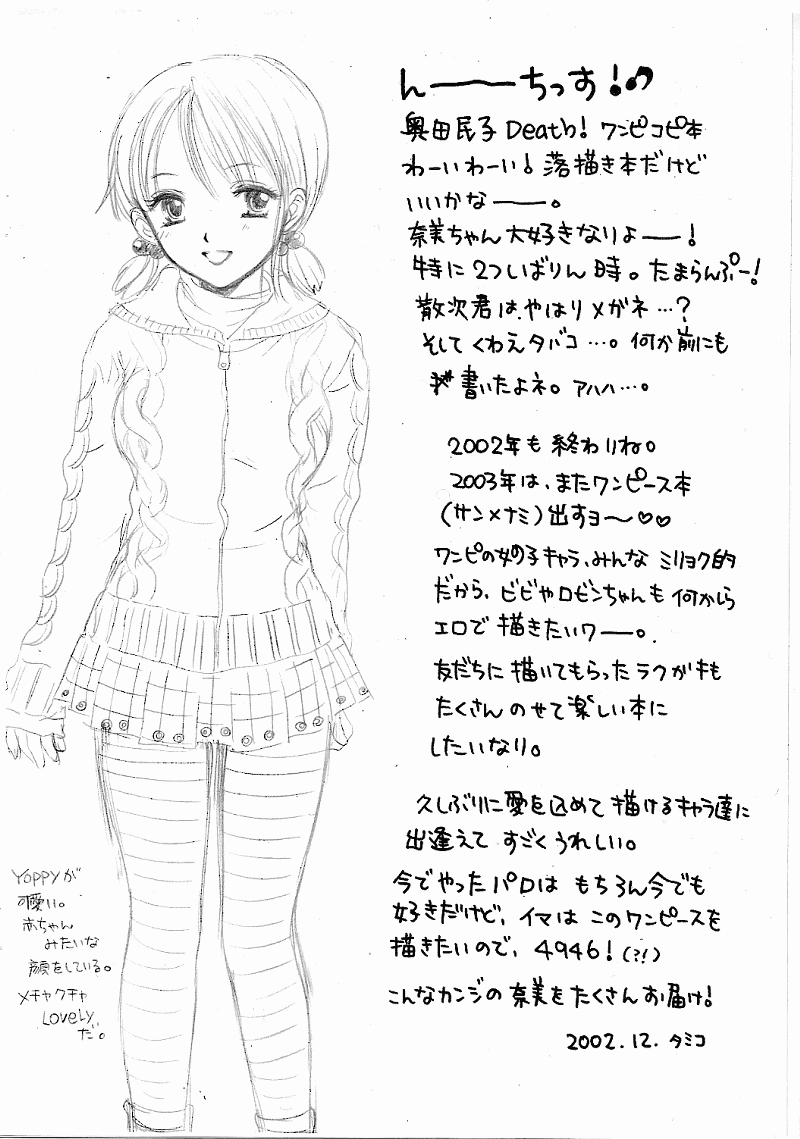 んーーちっす!♪
奥田民子Death! ワンピコピ本
わーいわーい! 落描き本だけど
いいかなーー。
奈美ちゃん大好きなりよーー!
特に2ついばりん時。たまらんぷー!
散次君はやはりメガネ…?
そしてくわえタバコ…。何か前にも
書いたよネ。アハハ…。
2002年も終わりね。
2003年は、またワンピース本
(サン×ナミ)出すヨ〜♡♡
ワンピの女の子キャラ、みんなミリョク的
だから、ビビやロビンちゃんも何かしら
エロで描きたいワーー。
友だちに描いてもらったラクガキも
たくさんのせて楽しい本に
したいなり。
久しぶりに愛を込めて描けるキャラ達に
出逢えてすごくうれしい。
今でやったパロはもちろん今でも
好きだけど、イマはこのワンピースを
描きたいので、4946!(?!)
こんなカンジの奈美をたくさんお届け!
2002.12.タミコ
YOPPYが
可愛い。
赤ちゃん
みたいな
顔をしている。
メチャクチャ
LOVELY
だ。